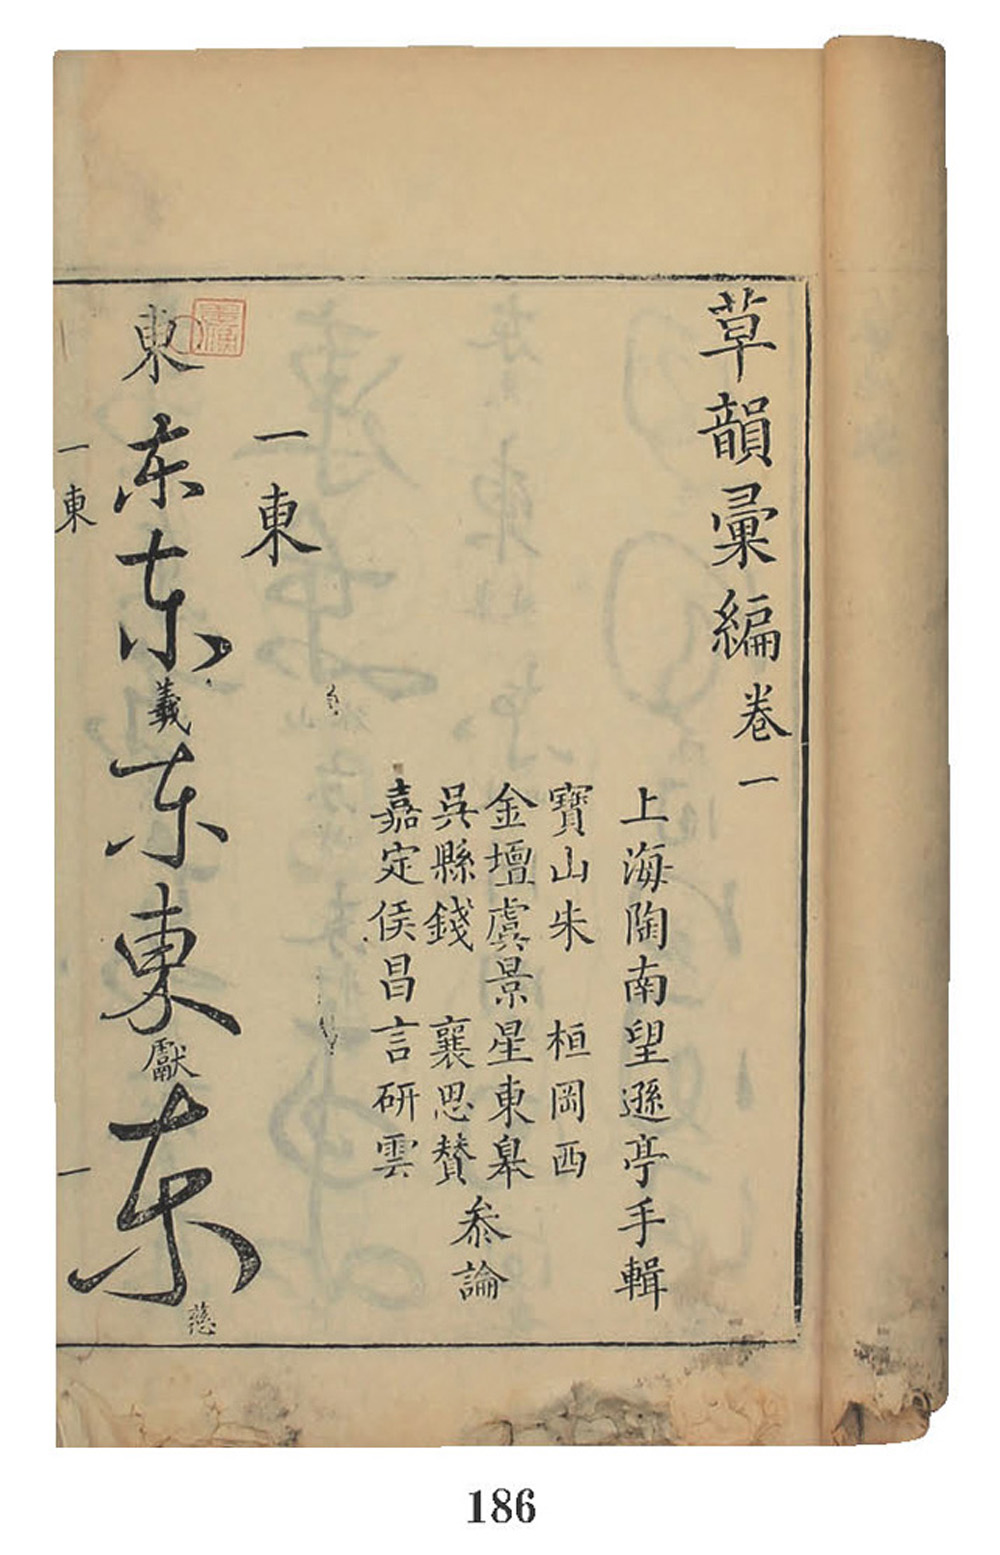 草韻彙編卷一
上海陶南望遜亭手輯
寶山朱 桓岡西
金壇虞景星東皋
吳縣錢 襄思贊
嘉定侯昌言研雲
叅論
一東
東东东義东東獻东慈
一東
一
186